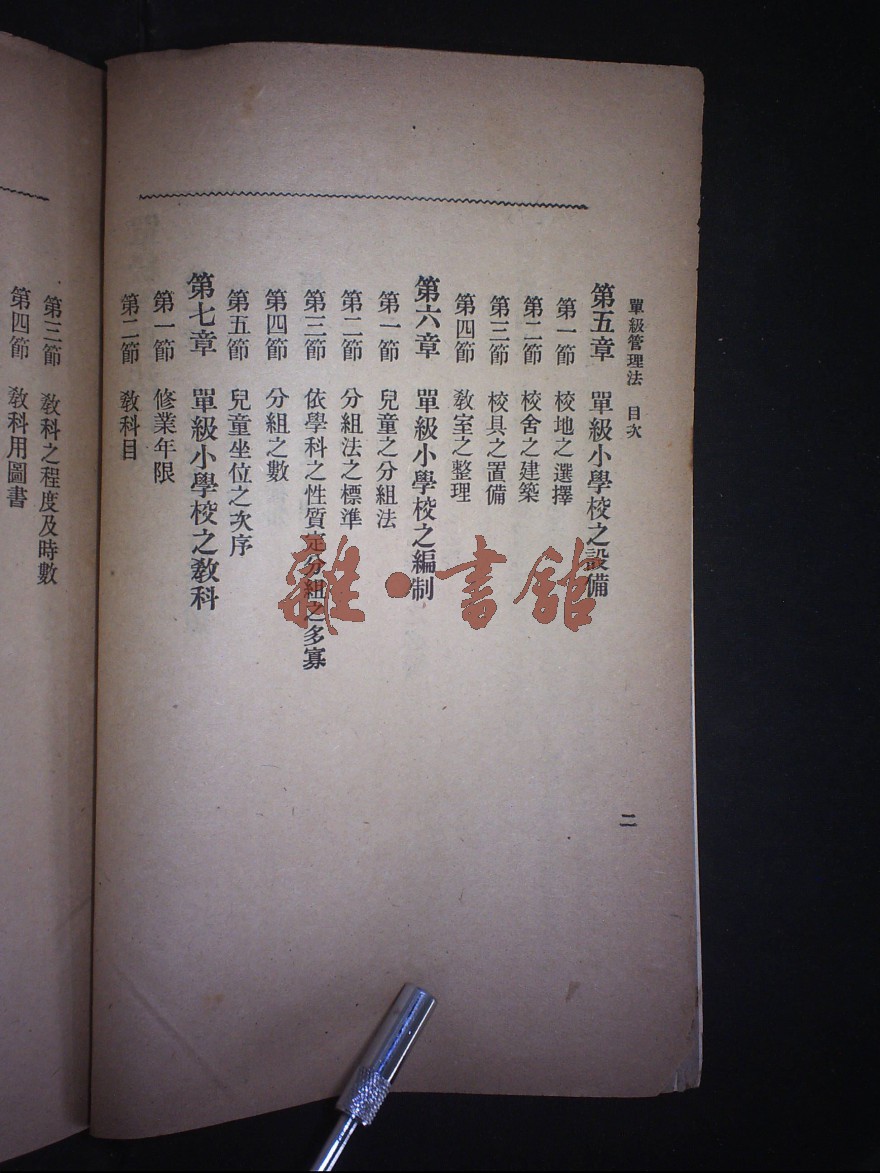 單級管理法 目次
二
第五章 單級小學校之設備
第一節 校地之選擇
第二節 校舍之建築
第三節 校具之置備
第四節 敎室之整理
第六章 單級小學校之編制
第一節 兒童之分組法
第二節 分組法之標準
第三節 依學科之性質定分組之多寡
第四節 分組之數
第五節 兒童坐位之次序
第七章 單級小學校之敎科
第一節 修業年限
第二節 敎科目
第三節 敎科之程度及時數
第四節 敎科用圖書
雜·書館